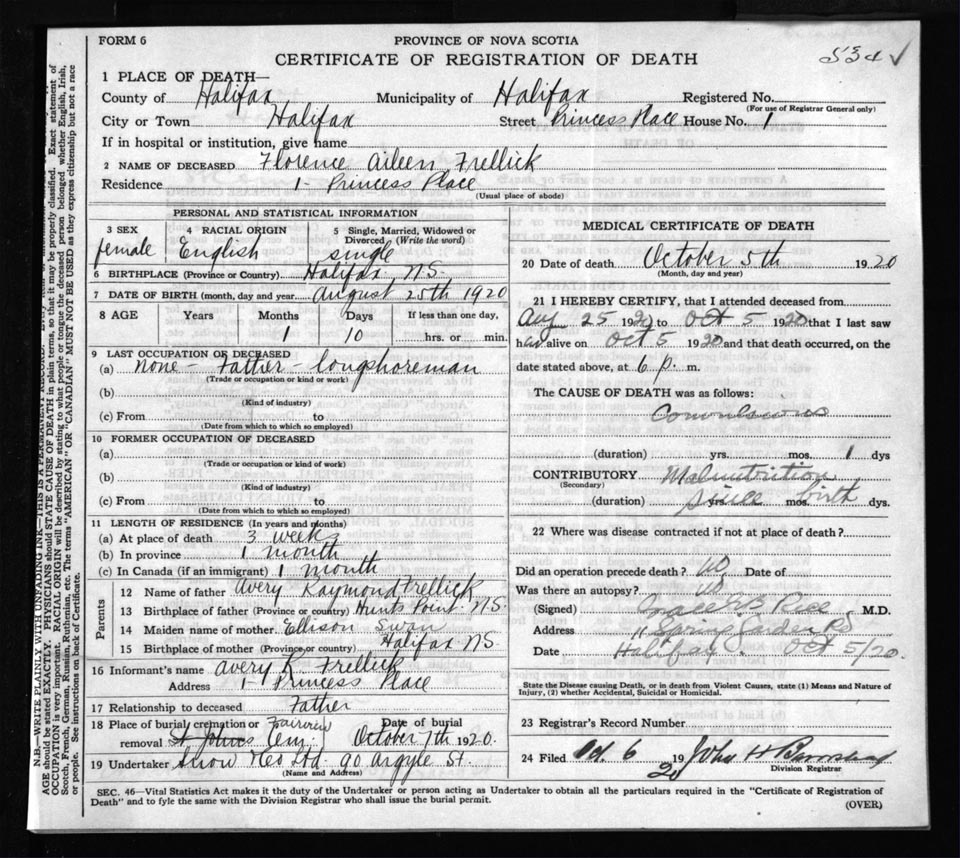 FORM 6
PROVINCE OF NOVA SCOTIA
CERTIFICATE OF REGISTRATION OF DEATH
534 ✓
1 PLACE OF DEATH—
County of Halifax Municipality of Halifax Registered No.
(For use of Registrar General only)
City or Town Halifax Street Princess Place House No. 1
If in hospital or institution, give name
2 NAME OF DECEASED Florence Aileen Frellick
Residence 1 - Princess Place
(Usual place of abode)
PERSONAL AND STATISTICAL INFORMATION
3 SEX 4 RACIAL ORIGIN 5 Single, Married, Widowed or Divorced (Write the word)
female English single
6 BIRTHPLACE (Province or Country) Halifax N.S.
7 DATE OF BIRTH (month, day and year) August 25th 1920
8 AGE Years Months Days If less than one day,
1 10 hrs. or min.
9 LAST OCCUPATION OF DECEASED
(a) None - Father - Longshoreman
(Trade or occupation or kind or work)
(b)
(Kind of industry)
(c) From to
(Date from which to which so employed)
10 FORMER OCCUPATION OF DECEASED
(a)
(Trade or occupation or kind of work)
(b)
(Kind of industry)
(c) From to
(Date from which to which so employed)
11 LENGTH OF RESIDENCE (In years and months)
(a) At place of death 3 weeks
(b) In province 1 month
(c) In Canada (if an immigrant) 1 month
Parents
12 Name of father Avery Raymond Frellick
13 Birthplace of father (Province or country) Hunts Point N.S.
14 Maiden name of mother Ellison Swan
15 Birthplace of mother (Province or country) Halifax N.S.
16 Informant's name Avery R Frellick
Address 1 - Princess Place
17 Relationship to deceased Father
18 Place of burial cremation or Fairview Date of burial
removal St Johns Cem. October 7th 1920.
19 Undertaker Snow &Co Ltd. 90 Argyle St.
(Name and Address)
MEDICAL CERTIFICATE OF DEATH
20 Date of death October 5th 1920
(Month, day and year)
21 I HEREBY CERTIFY, that I attended deceased from
Aug 25 1920 to Oct 5 1920 that I last saw
her alive on Oct 5 1920 and that death occurred, on the
date stated above, at 6 p. m.
The CAUSE OF DEATH was as follows:
Convulsions
(duration) yrs. mos. 1 dys
CONTRIBUTORY Malnutrition
(Secondary)
(duration) since yrs. mos. birth dys.
22 Where was disease contracted if not at place of death?
Did an operation precede death? No. Date of
Was there an autopsy? No
(Signed) Rice, M.D.
Address Spring Garden Rd
Date Halifax. Oct 5/20.
State the Disease causing Death, or in death from Violent Causes, state (1) Means and Nature of
Injury, (2) whether Accidental, Suicidal or Homicidal.
23 Registrar's Record Number
24 Filed Oct. 6 1920 John H
Division Registrar
SEC. 46—Vital Statistics Act makes it the duty of the Undertaker or person acting as Undertaker to obtain all the particulars required in the "Certificate of Registration of
Death" and to fyle the same with the Division Registrar who shall issue the burial permit.
(OVER)
N.B.—WRITE PLAINLY WITH UNFADING INK—THIS IS A PERMANENT RECORD.
AGE should be stated EXACTLY. PHYSICIANS should STATE CAUSE OF DEATH in plain terms, so that it may be properly classified. Exact statement of
OCCUPATION is very important. RACIAL ORIGIN will be described by stating to what people or tongue the deceased person belonged whether English, Irish,
Scotch, French, German, Russian, Ruthenian, etc. The terms "AMERICAN" OR "CANADIAN" MUST NOT BE USED as they express citizenship but not a race
or people. See instructions on back of Certificate.